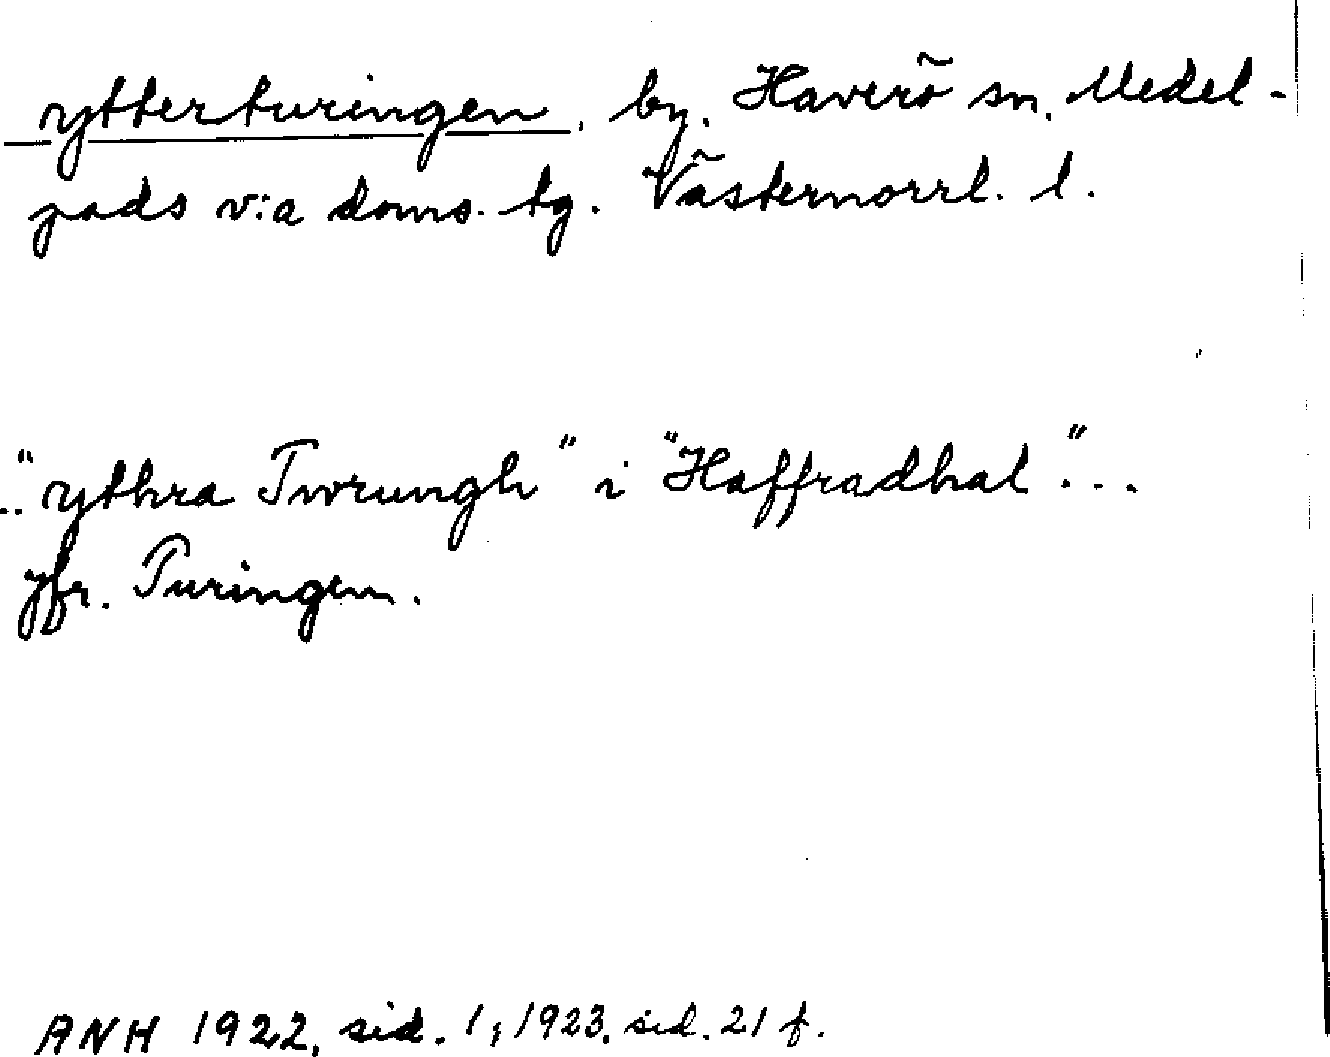 ytterturingen, by. Haverö sn. Medel-
pads v:a doms. tg. Västernorrl. l.
.."ythra Twrungh" i "Haffradhal"...
jfr. Turingen.
ANH 1922, sid. 1, 1923, sid. 21 f.